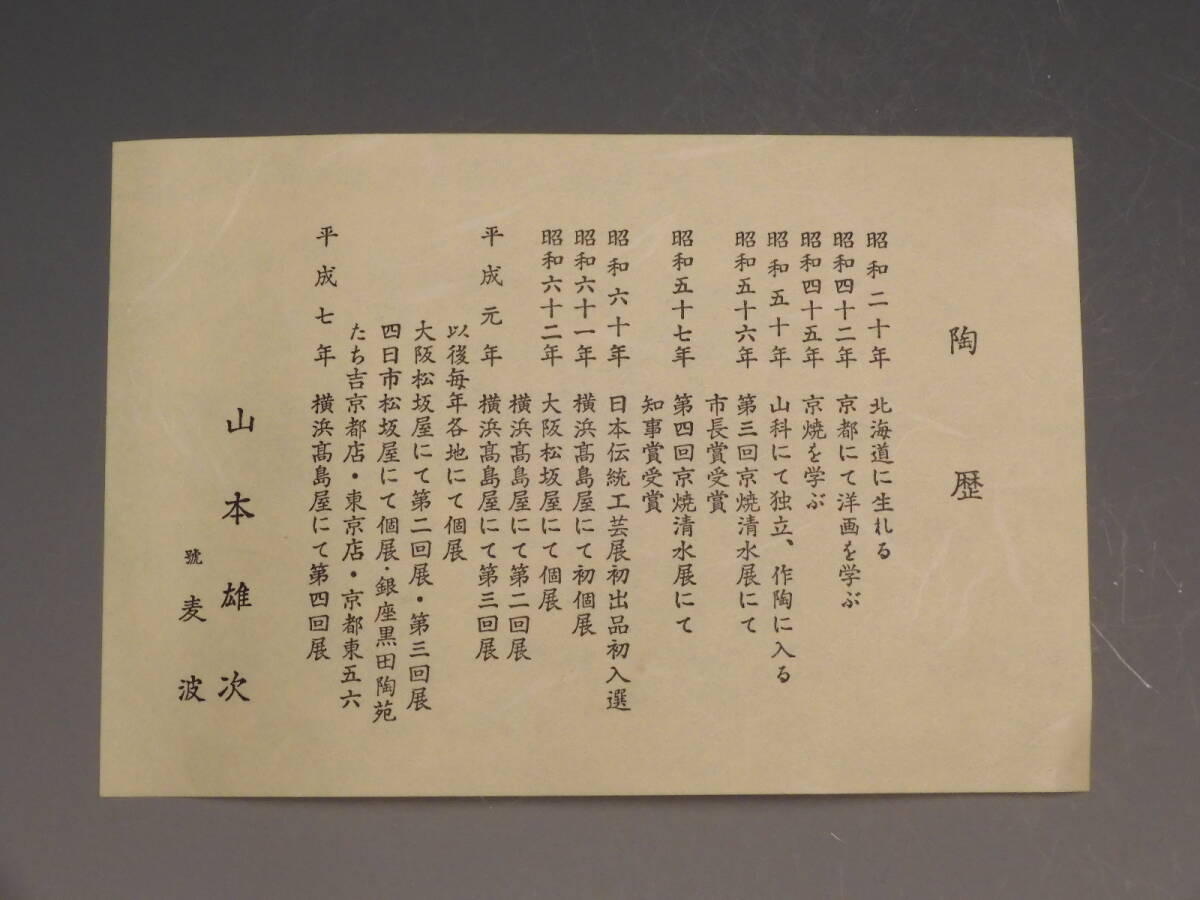 陶歴
昭和二十年 北海道に生れる
昭和四十二年 京都にて洋画を学ぶ
昭和四十五年 京焼を学ぶ
昭和五十年 山科にて独立、作陶に入る
昭和五十六年 第三回京焼清水展にて
市長賞受賞
昭和五十七年 第四回京焼清水展にて
知事賞受賞
昭和六十年 日本伝統工芸展初出品初入選
昭和六十一年 横浜髙島屋にて初個展
昭和六十二年 大阪松坂屋にて個展
横浜髙島屋にて第二回展
平成元年 横浜髙島屋にて第三回展
以後毎年各地にて個展
大阪松坂屋にて第二回展・第三回展
四日市松坂屋にて個展・銀座黒田陶苑
たち吉京都店・東京店・京都東五六
平成七年 横浜髙島屋にて第四回展
山本雄次
號 麦波